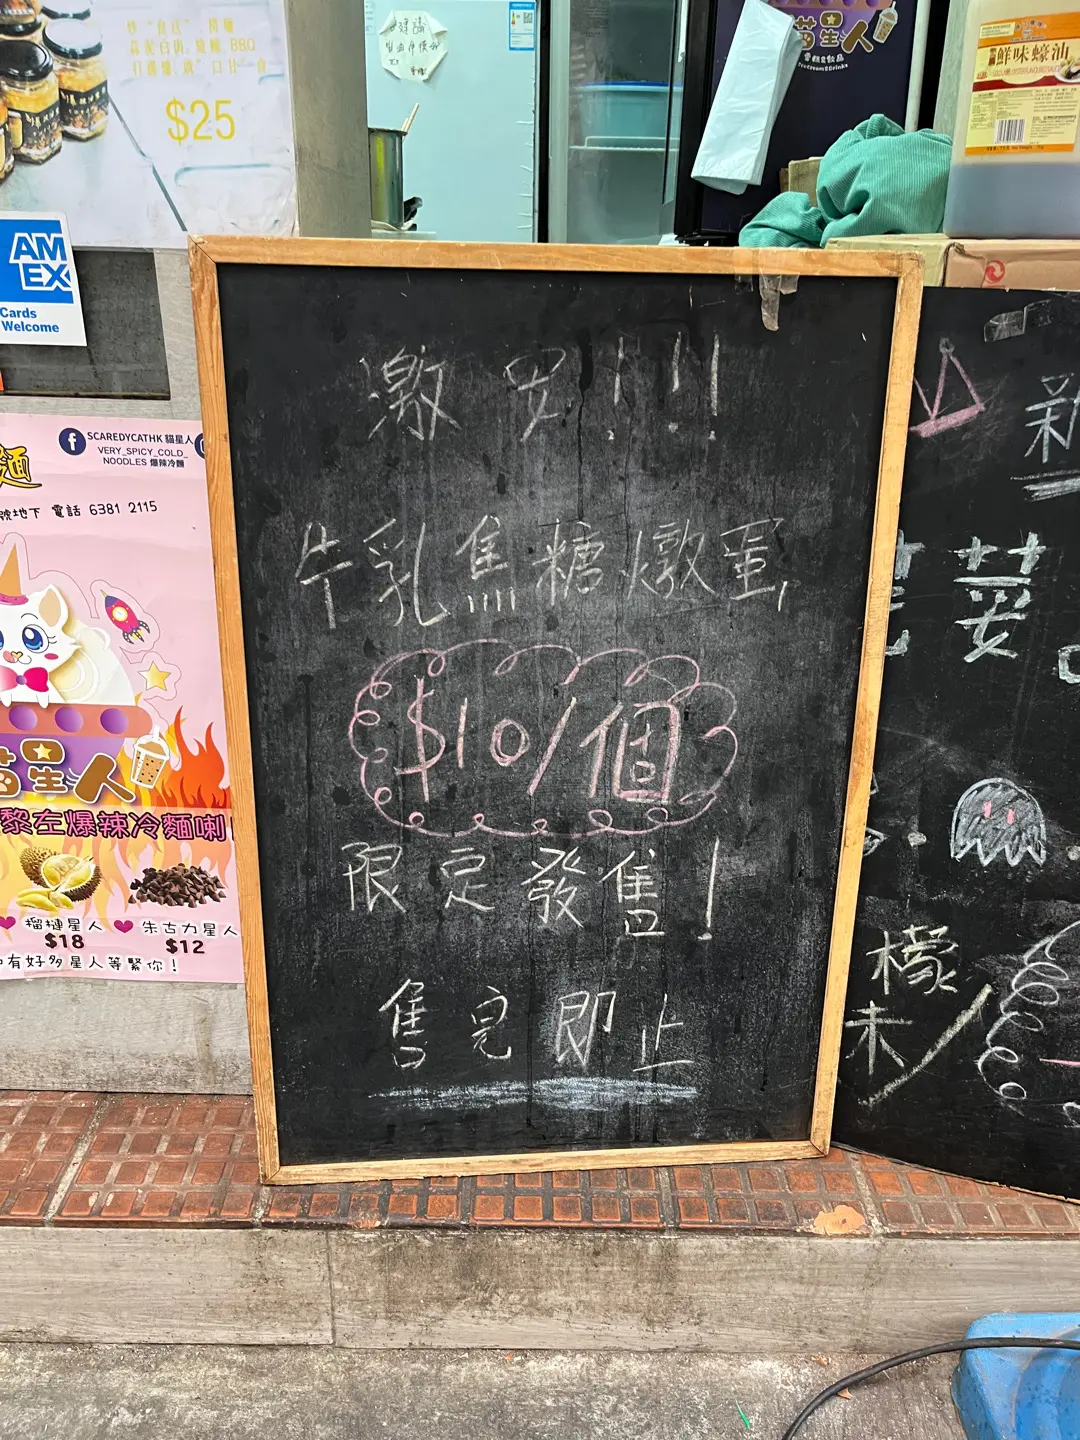 $25
AM
EX
Cards
Welcome
SCAREDYCATHK 貓星人
VERY_SPICY_COLD_
NOODLES 爆辣冷麵
麵
號地下 電話 6381 2115
貓星人
黎左爆辣冷麵喇
榴槤星人
$18
朱古力星人
$12
有好多星人等緊你！
貓星人
雪糕&飲品
Icecream&Drinks
鮮味蠔油
激安!!!
牛乳焦糖燉蛋
$10/個
限定發售!
售完即止
新
芫荽
檬
未